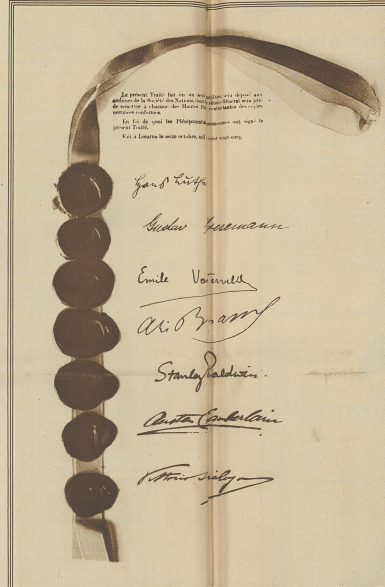 Le présent Traité fait en un seul exemplaire sera déposé aux
archives de la Société des Nations,
de remettre à chacune des Hautes Parties contractantes des copies
certifiées conformes.
En foi de quoi les Plénipotentiaires ont signé le
présent Traité.
Fait à Locarno le seize octobre, mil neuf cent vingt-cinq.
Hans Luther
Gustav Stresemann
Emile Vandervelde
Ari Briand
Stanley Baldwin.
Austen Chamberlain
Vittorio Scialoja